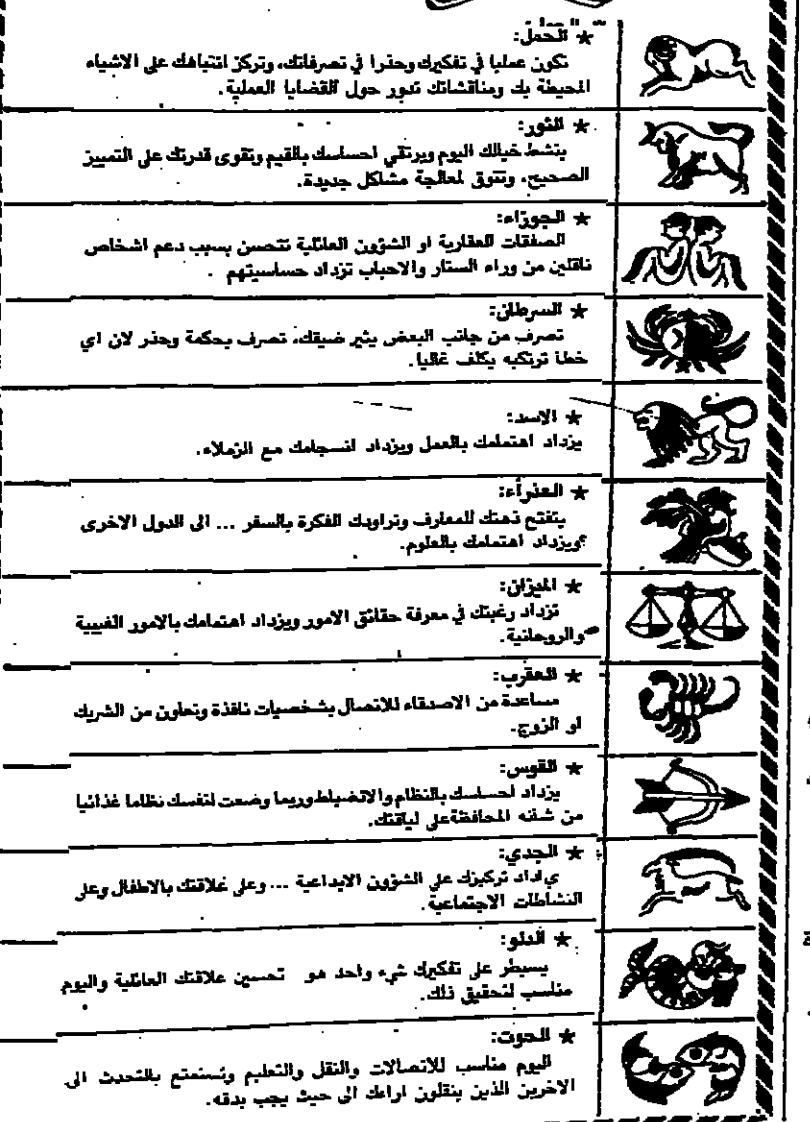 ★ الحمل:
تكون عمليا في تفكيرك وحذرا في تصرفاتك، وتركز انتباهك على الاشياء
المحيطة بك ومناقشاتك تدور حول القضايا العملية.
★ الثور:
ينشط خيالك اليوم ويرتقي احساسك بالقيم وتقوى قدرتك على التمييز
الصحيح، وتتوق لمعالجة مشاكل جديدة.
★ الجوزاء:
الصفقات العقارية او الشؤون العائلية تتحسن بسبب دعم اشخاص
نافذين من وراء الستار والاحباب تزداد حساسيتهم .
★ السرطان:
تصرف من جانب البعض يثير ضيقك، تصرف بحكمة وحذر لان اي
خطا ترتكبه يكلف غاليا.
★ الاسد:
يزداد اهتمامك بالعمل ويزداد انسجامك مع الزملاء.
★ العذراء:
يتفتح ذهنك للمعارف وتراودك الفكرة بالسفر ... الى الدول الاخرى
ويزداد اهتمامك بالعلوم.
★ الميزان:
تزداد رغبتك في معرفة حقائق الامور ويزداد اهتمامك بالامور الغيبية
والروحانية.
★ العقرب:
مساعدة من الاصدقاء للاتصال بشخصيات نافذة وتعاون من الشريك
او الزوج.
★ القوس:
يزداد احساسك بالنظام والانضباط وربما وضعت لنفسك نظاما غذائيا
من شانه المحافظة على لياقتك.
★ الجدي:
تركيزك على الشؤون الابداعية ... وعلى علاقتك بالاطفال وعلى
النشاطات الاجتماعية.
★ الدلو:
يسيطر على تفكيرك شيء واحد هو تحسين علاقتك العائلية واليوم
مناسب لتحقيق ذلك.
★ الحوت:
اليوم مناسب للاتصالات والنقل والتعليم وتستمتع بالتحدث الى
الاخرين الذين ينقلون اراءك الى حيث يجب بدقه.